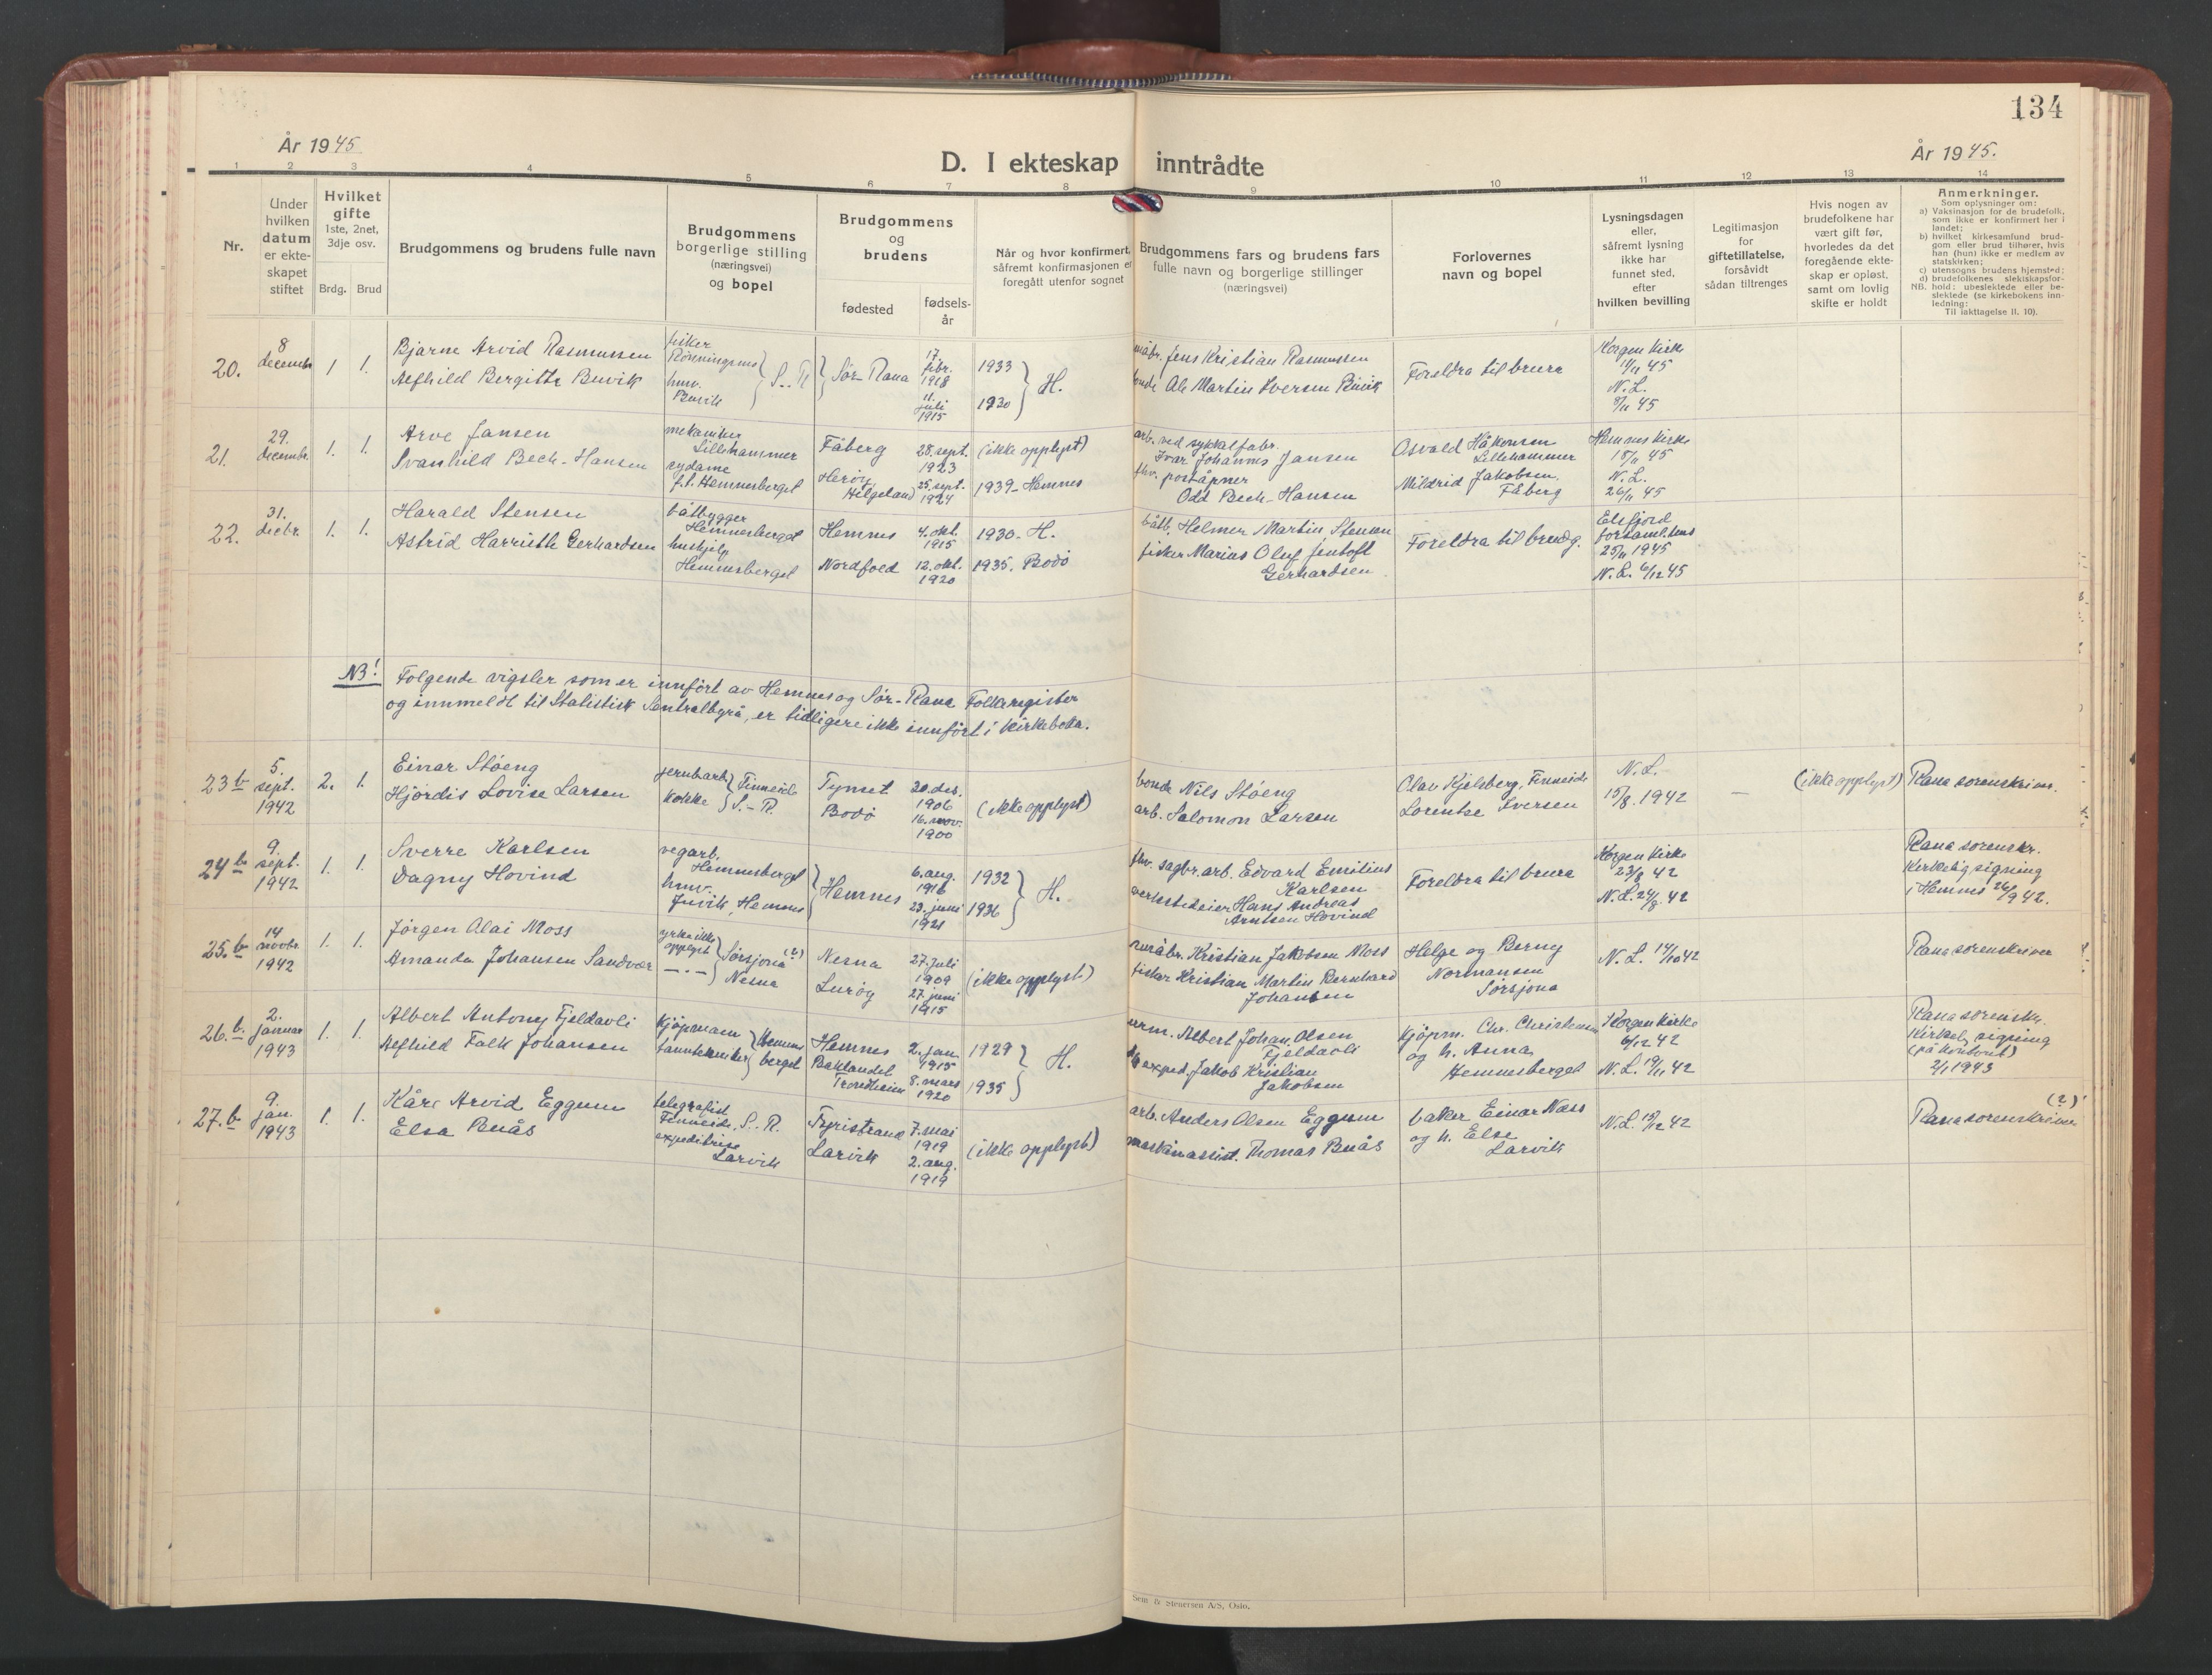 134
År 1945
År 1945.
D. I ekteskap inntrådte
1 2 3 4 5 6 7 8 9 10 11 12 13 14
Nr.
Under
hvilken
datum
er ekte-
skapet
stiftet
Hvilket
gifte
1ste, 2net,
3dje osv.
Brdg. Brud
Brudgommens og brudens fulle navn
Brudgommens
borgerlige stilling
(næringsvei)
og bopel
Brudgommens
og
brudens
fødested
fødsels-
år
Når og hvor konfirmert,
såfremt konfirmasjonen er
foregått utenfor sognet
Brudgommens fars og brudens fars
fulle navn og borgerlige stillinger
(næringsvei)
Forlovernes
navn og bopel
Lysningsdagen
eller,
såfremt lysning
ikke har
funnet sted,
efter
hvilken bevilling
Legitimasjon
for
giftetillatelse,
forsåvidt
sådan tiltrenges
Hvis nogen av
brudefolkene har
vært gift før,
hvorledes da det
foregående ekte-
skap er opløst,
samt om lovlig
skifte er holdt
Anmerkninger.
Som oplysninger om:
a) Vaksinasjon for de brudefolk,
som ikke er konfirmert her i
landet;
b) hvilket kirkesamfund brud-
gom eller brud tilhører, hvis
han (hun) ikke er medlem av
statskirken;
c) utensogns brudens hjemsted;
d) brudefolkenes slekiskapsfor-
hold: ubeslektede eller be-
slektede (se kirkebokens inn-
ledning:
NB. Til iakttagelse II. 10).
20.
8
decembr
1 1.
Bjarne Arvid Rasmussen
Alfhild Bergitte Buvik
fisker
Rønningsnes
hmv.
Buvik
S.-R
Sør-Rana
17.
febr.
1918
11.
juli
1915
1933
1930
H.
småbr. Jens Kristian Rasmussen
bonde Ole Martin Iversen Buvik
Foreldra til brura
Korgen Kirke
11/11 45
N.L.
9/11 45
21.
29.
decembr.
1. 1.
Arve Jansen
Svanhild Bech-Hansen
mekaniker
Lillehammer
sydame
f.t. Hemnesberget
Fåberg
Herøy,
Helgeland
28. sept.
1923
25. sept.
1924
(ikke opplyst)
1939 - Hemnes
arb. ved sykkelfabr.
Ivar Johannes Jansen
fhv. poståpner
Odd Bech-Hansen
Osvald Håkonsen
Lillehammer
Mildrid Jakobsen,
Fåberg
Hemnes Kirke
18/11 45
N.L.
26/11 45
22.
31.
decbr.
1. 1.
Harald Stensen
Astrid Harrieth Gerhardsen
båtbygger
Hemnesberget
hushjelp
Hemnesberget
Hemnes
Nordfold
4. okt.
1915
12. okt.
1920
1930 - H.
1935. Bodø
båtb. Helmer Martin Stensen
fisker Marius Oluf Jentoft
Gerhardsen
Foreldra til brudg.
Elsfjord
forsaml.hus
25/11 1945
N.L. 6/12 45
NB!
Følgende vigsler som er innført av Hemnes og Sør-Rana Folkeregister
og innmeldt til Statistisk Sentralbyrå, er tidligere ikke innført i kirkeboka.
23b
5.
sept.
1942
2. 1.
Einar Støeng
Hjørdis Lovise Larsen
jernb.arb.
kokke
Finneide
S.-R.
Tynset
Bodø
20. des.
1906
16. nov.
1900
(ikke opplyst)
bonde Nils Støeng
arb. Salomon Larsen
Olav Kjelsberg, Finneide
Lorentse Iversen
N.L.
15/8. 1942
—
(ikke opplyst)
Rana sorenskriver.
24b
9.
sept.
1942
1. 1.
Sverre Karlsen
Dagny Hovind
vegarb.
Hemnesberget
hmv.
Juvik, Hemnes
Hemnes
6. aug.
1916
23. juni
1921
1932
1936
H.
fhv. sagbr.arb. Edvard Emilius
Karlsen
verkstedeier Hans Andreas
Arntsen Hovind
Foreldra til brura
Korgen Kirke
23/8 42
N.L. 24/8 42
Rana sorenskr.
Kirkelig signing
i Hemnes 26/9 42.
25.b
14
novbr.
1942
1. 1.
Jørgen Olai Moss
Amanda Johansen Sandvær
yrke ikke
opplyst
— . —
Sørsjona (?)
Nesna
Nesna
Lurøy
27. juli
1909
27. juni
1915
(ikke opplyst)
småbr. Kristian Jakobsen Moss
fisker Kristian Martin Bernhard
Johansen
Helge og Berny
Normansen
Sørsjona
N.L. 14/10 42
Rana sorenskriver
26.b.
2.
januar
1943
1. 1.
Albert Antony Fjeldavli
Alfhild Falk Johansen
Kjøpmann
tanntekniker
Hemnes
berget
Hemnes
Baklandet
Trondheim
2. jan.
1915
8. mars
1920
1929
1935
H.
urm. Albert Johan Olsen
Fjeldavli
exped. Jakob Kristian
Jakobsen
Kjøpm. Chr. Christensen
og h. Anna,
Hemnesberget
Korgen Kirke
6/12 42
N.L. 19/11 42
Rana sorenskr.
Kirkel. signing
(på kontoret)
2/1 1943
27.b
9.
jan.
1943
1. 1.
Kåre Arvid Eggum
Elsa Buås
telegrafist
Finneide, S.-R.
expeditrise
Larvik
Tyristrand
Larvik
7. mai
1919
2. aug.
1919
(ikke opplyst)
arb. Anders Olsen Eggum
maskinassist. Thomas Buås
baker Einar Næss
og h. Else
Larvik
N.L. 15/12 42
(?)
Rana sorenskriver
Sem & Stenersen A/S, Oslo.